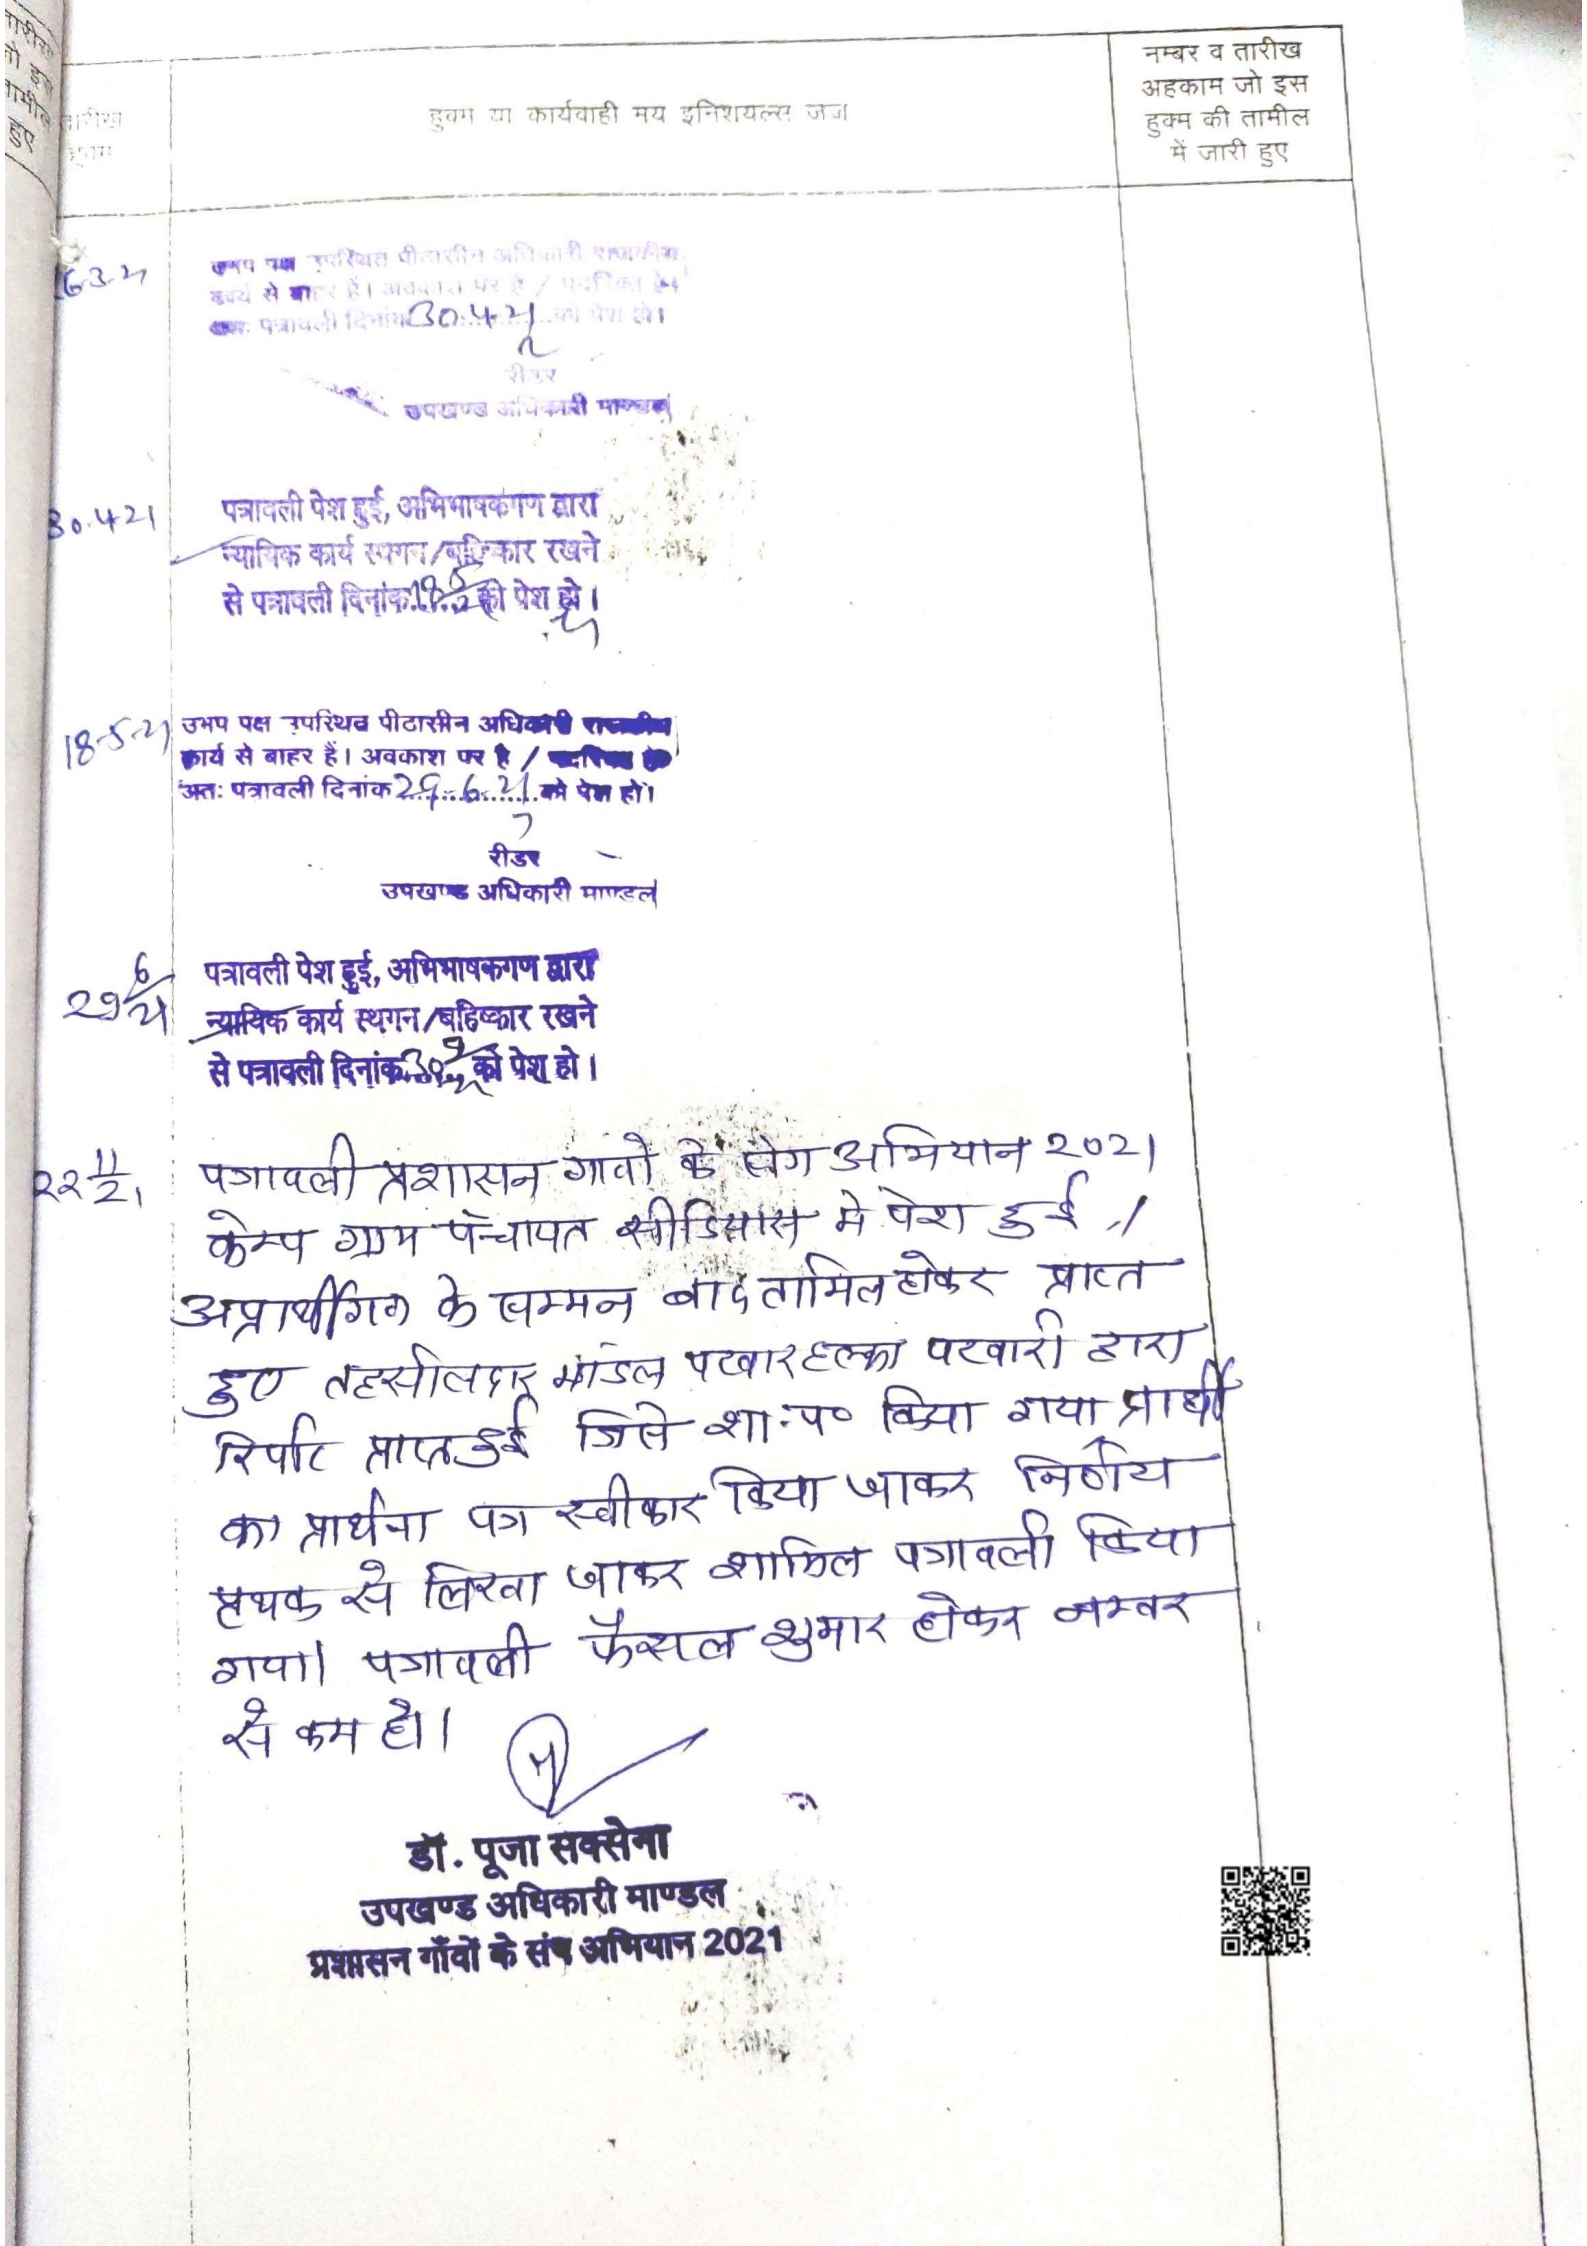 तारीख
हुक्म
हुक्म या कार्यवाही मय इनिशयल्स जज
नम्बर व तारीख
अहकाम जो इस
हुक्म की तामील
में जारी हुए
उपस्थित पीठासीन अधिकारी राजकीय
कार्य से बाहर हैं। अवकाश पर है /
अतः पत्रावली दिनांक 30.4.21 को पेश हो।
रीडर
उपखण्ड अधिकारी माण्डल
30.4.21
पत्रावली पेश हुई, अभिभाषकगण द्वारा
न्यायिक कार्य स्थगन/बहिष्कार रखने
से पत्रावली दिनांक 18.5 को पेश हो।
18-5-21
उभय पक्ष उपस्थित पीठासीन अधिकारी राजकीय
कार्य से बाहर हैं। अवकाश पर है /
अतः पत्रावली दिनांक 29.6.21 को पेश हो।
रीडर
उपखण्ड अधिकारी माण्डल
29 6/21
पत्रावली पेश हुई, अभिभाषकगण द्वारा
न्यायिक कार्य स्थगन/बहिष्कार रखने
से पत्रावली दिनांक 30 9/21 को पेश हो।
22 11/21
पत्रावली प्रशासन गावो के संग अभियान 2021
केम्प ग्राम पंचायत सीडियास मे पेश हुई।
अप्रार्थीगण के सम्मन बाद तामिल होकर प्राप्त
हुए तहसीलदार मांडल पटवार हल्का पटवारी द्वारा
रिर्पोट प्राप्त हुई जिसे शा.प० किया गया प्रार्थी
का प्रार्थना पत्र स्वीकार किया जाकर निर्णय
प्रथक से लिखा जाकर शामिल पत्रावली किया
गया। पत्रावली फैसल शुमार होकर नम्बर
से कम हो।
डॉ. पूजा सक्सेना
उपखण्ड अधिकारी माण्डल
प्रशासन गाँवों के संघ अभियान 2021